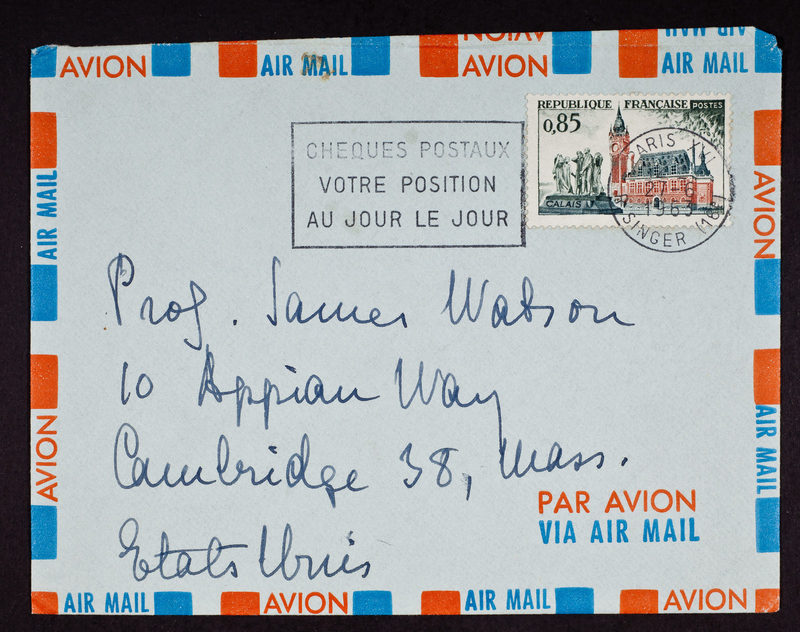 AVION AIR MAIL AVION AIR MAIL
AVION AIR MAIL
REPUBLIQUE FRANÇAISE POSTES
0,85
CALAIS
PARIS XVI
27-6
1963
R. SINGER (16)
CHEQUES POSTAUX
VOTRE POSITION
AU JOUR LE JOUR
AIR MAIL
AVION
Prof. James Watson
10 Appian Way
Cambridge 38, Mass.
Etats Unis
AVION
AIR MAIL
PAR AVION
VIA AIR MAIL
AIR MAIL AVION AIR MAIL AVION